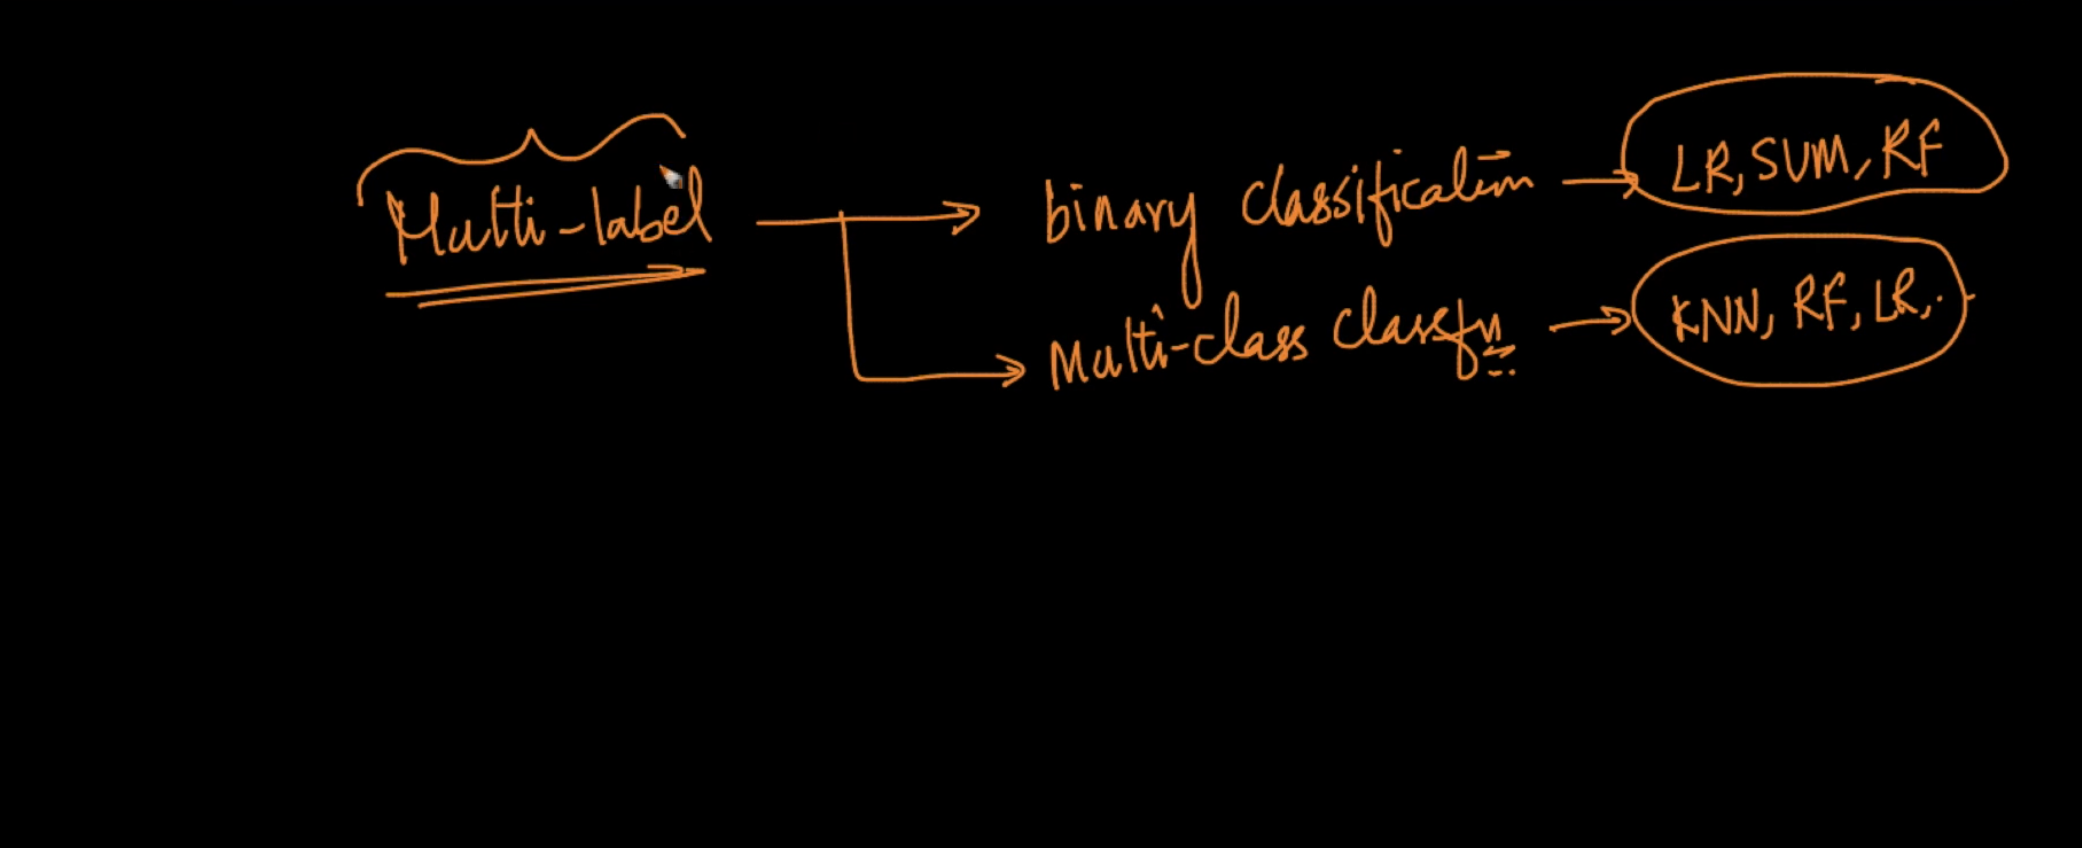 Multi-label
binary classification
LR, SVM, RF
Multi-class classfn
KNN, RF, LR, .